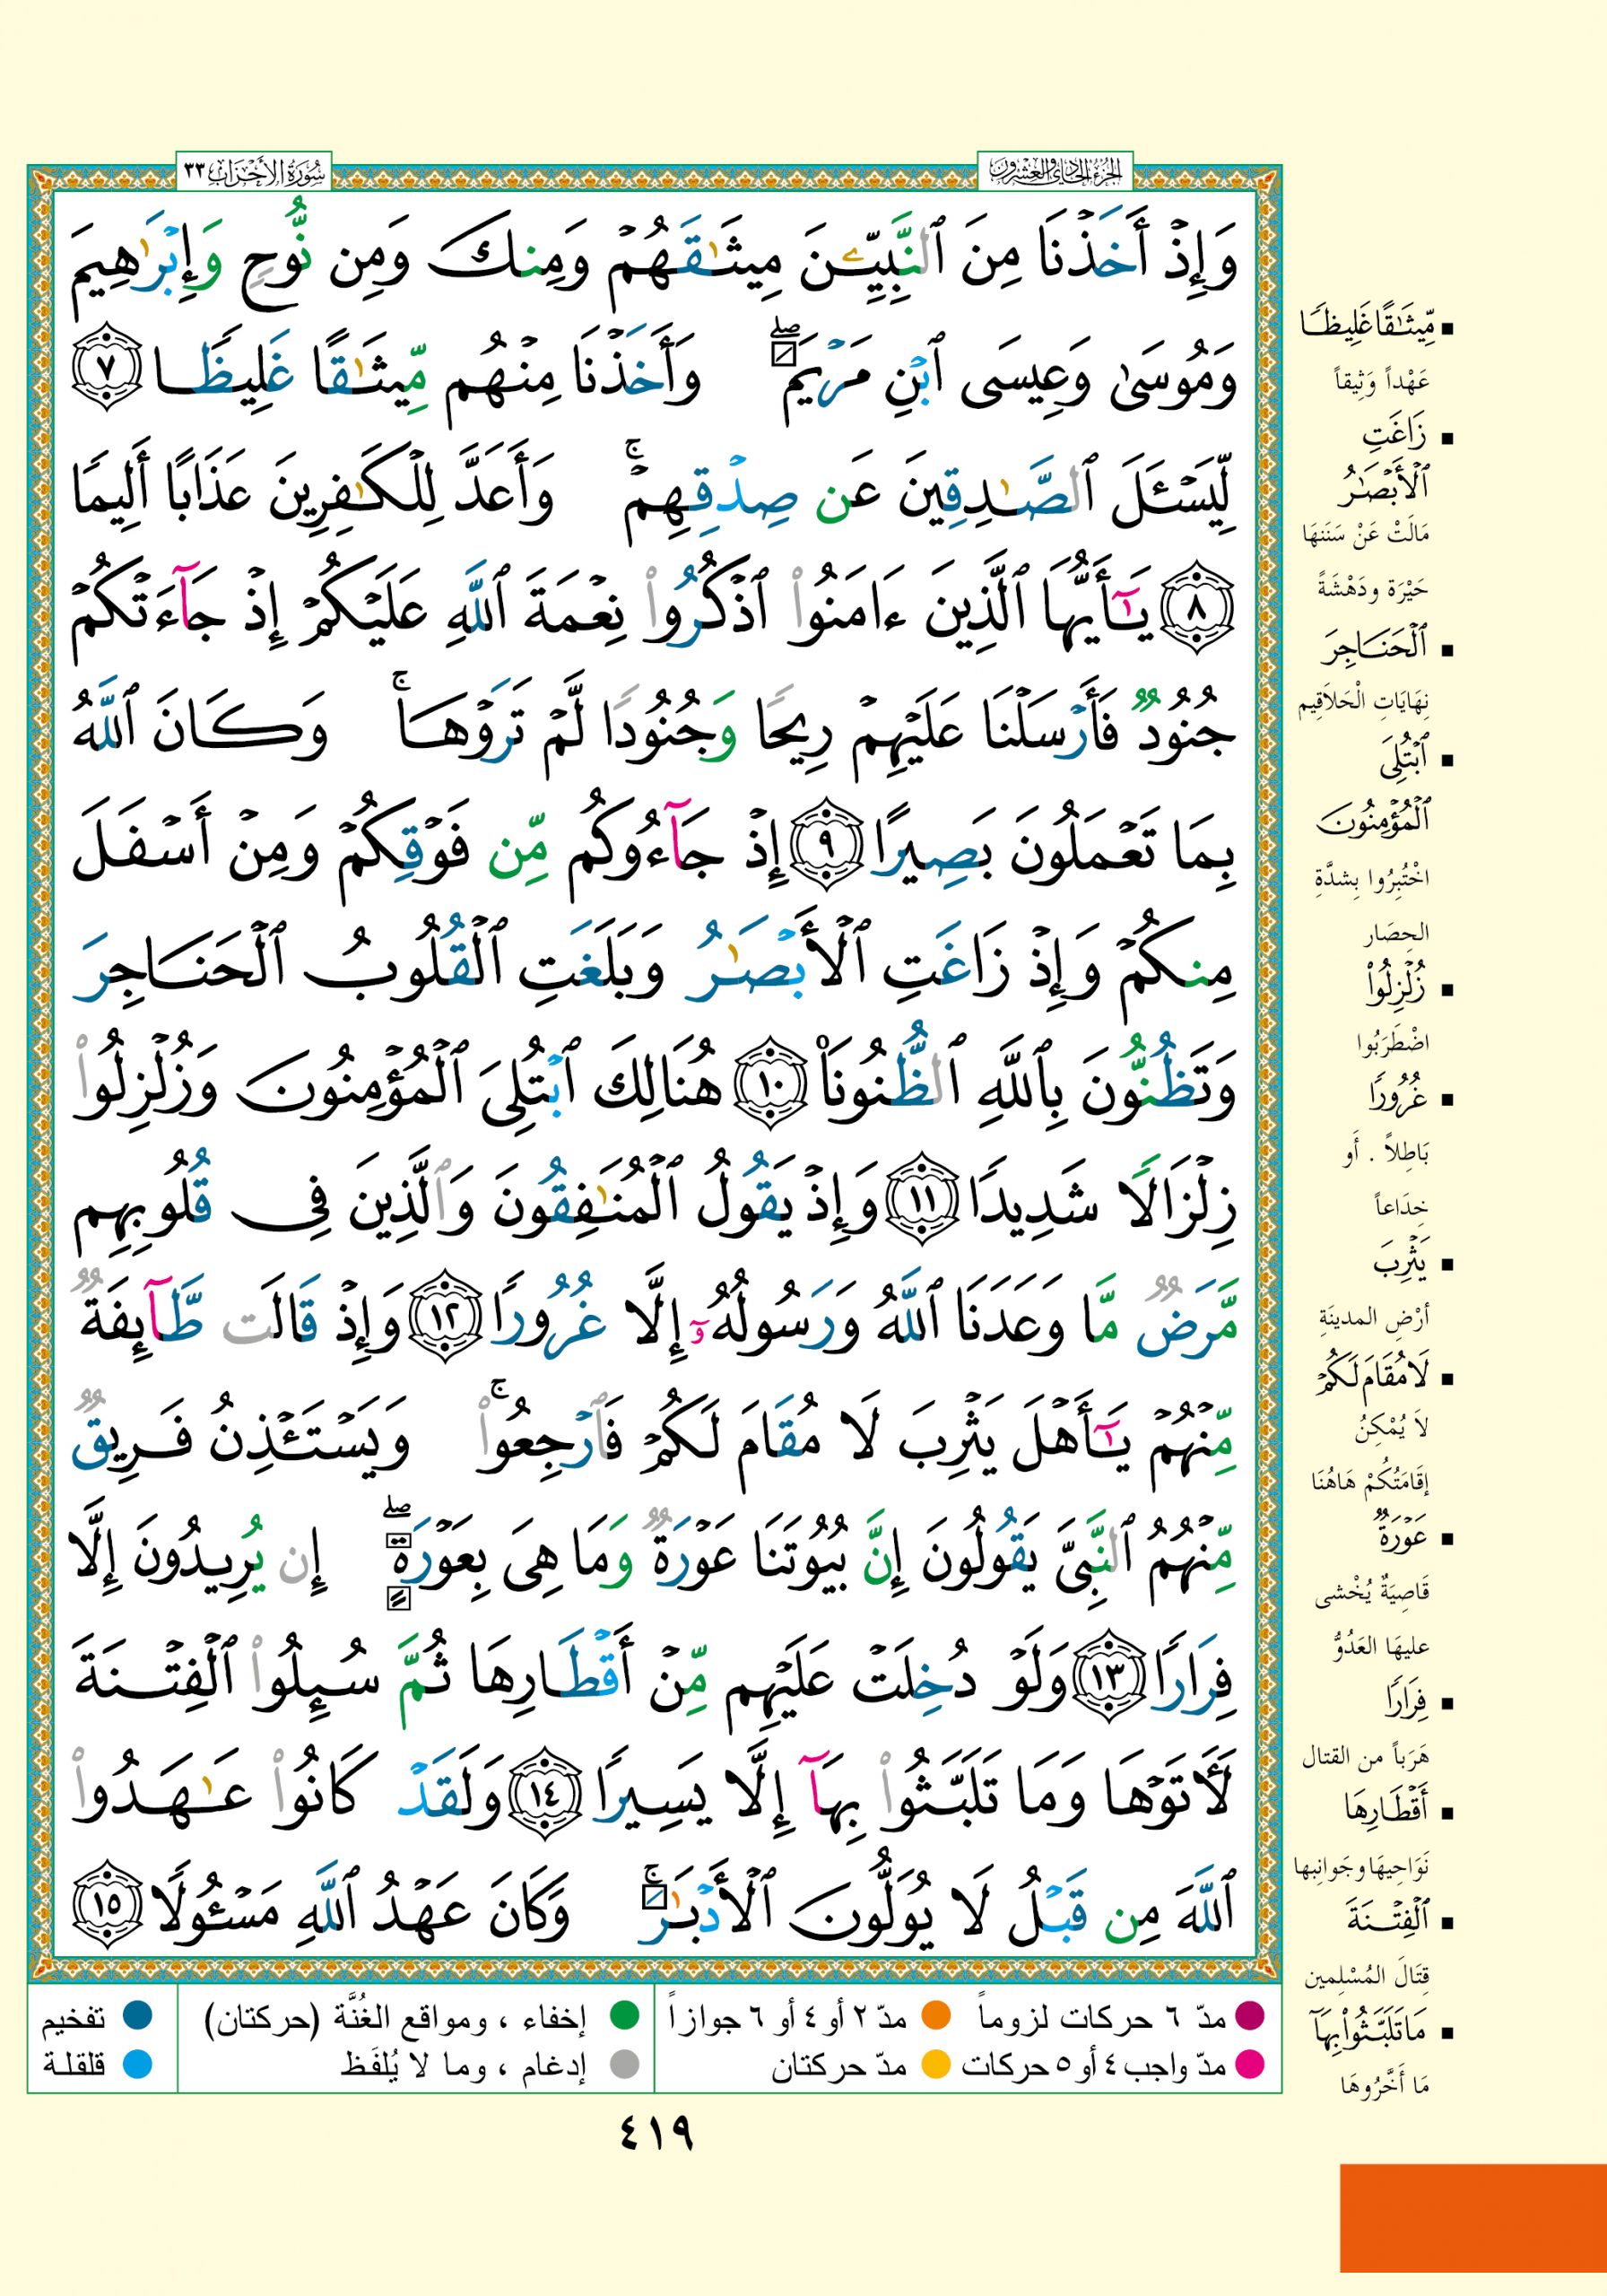 الجزء الحادي والعشرون
سُورَةُ الأَحْزَاب ٣٣
وَإِذْ أَخَذْنَا مِنَ ٱلنَّبِيِّـۧنَ مِيثَـٰقَهُمْ وَمِنكَ وَمِن نُّوحٍ وَإِبْرَٰهِيمَ
وَمُوسَىٰ وَعِيسَى ٱبْنِ مَرْيَمَ ۖ وَأَخَذْنَا مِنْهُم مِّيثَـٰقًا غَلِيظًا ٧
لِّيَسْـَٔلَ ٱلصَّـٰدِقِينَ عَن صِدْقِهِمْ ۚ وَأَعَدَّ لِلْكَـٰفِرِينَ عَذَابًا أَلِيمًا
٨ يَـٰٓأَيُّهَا ٱلَّذِينَ ءَامَنُوا۟ ٱذْكُرُوا۟ نِعْمَةَ ٱللَّهِ عَلَيْكُمْ إِذْ جَآءَتْكُمْ
جُنُودٌ فَأَرْسَلْنَا عَلَيْهِمْ رِيحًا وَجُنُودًا لَّمْ تَرَوْهَا ۚ وَكَانَ ٱللَّهُ
بِمَا تَعْمَلُونَ بَصِيرًا ٩ إِذْ جَآءُوكُم مِّن فَوْقِكُمْ وَمِنْ أَسْفَلَ
مِنكُمْ وَإِذْ زَاغَتِ ٱلْأَبْصَـٰرُ وَبَلَغَتِ ٱلْقُلُوبُ ٱلْحَنَاجِرَ
وَتَظُنُّونَ بِٱللَّهِ ٱلظُّنُونَا۠ ١٠ هُنَالِكَ ٱبْتُلِىَ ٱلْمُؤْمِنُونَ وَزُلْزِلُوا۟
زِلْزَالًا شَدِيدًا ١١ وَإِذْ يَقُولُ ٱلْمُنَـٰفِقُونَ وَٱلَّذِينَ فِى قُلُوبِهِم
مَّرَضٌ مَّا وَعَدَنَا ٱللَّهُ وَرَسُولُهُۥٓ إِلَّا غُرُورًا ١٢ وَإِذْ قَالَت طَّآئِفَةٌ
مِّنْهُمْ يَـٰٓأَهْلَ يَثْرِبَ لَا مُقَامَ لَكُمْ فَٱرْجِعُوا۟ ۚ وَيَسْتَـْٔذِنُ فَرِيقٌ
مِّنْهُمُ ٱلنَّبِىَّ يَقُولُونَ إِنَّ بُيُوتَنَا عَوْرَةٌ وَمَا هِىَ بِعَوْرَةٍ ۖ إِن يُرِيدُونَ إِلَّا
فِرَارًا ١٣ وَلَوْ دُخِلَتْ عَلَيْهِم مِّنْ أَقْطَارِهَا ثُمَّ سُئِلُوا۟ ٱلْفِتْنَةَ
لَـَٔاتَوْهَا وَمَا تَلَبَّثُوا۟ بِهَآ إِلَّا يَسِيرًا ١٤ وَلَقَدْ كَانُوا۟ عَـٰهَدُوا۟
ٱللَّهَ مِن قَبْلُ لَا يُوَلُّونَ ٱلْأَدْبَـٰرَ ۚ وَكَانَ عَهْدُ ٱللَّهِ مَسْـُٔولًا ١٥
مِّيثَـٰقًا غَلِيظًا
عَهْداً وَثِيقاً
زَاغَتِ
ٱلْأَبْصَـٰرُ
مَالَتْ عَنْ سَنَنِهَا
حَيْرَة ودَهْشَةً
ٱلْحَنَاجِرَ
نِهَايَاتِ الْحَلاَقِيم
ٱبْتُلِىَ
ٱلْمُؤْمِنُونَ
اخْتُبِرُوا بِشدَّةِ
الحِصَار
زُلْزِلُوا۟
اضْطَرَبُوا
غُرُورًا
بَاطِلاً . أَو
خِدَاعاً
يَثْرِبَ
أرْضِ المدينَةِ
لَا مُقَامَ لَكُمْ
لاَ يُمْكِنُ
إقَامَتُكُمْ هَاهُنَا
عَوْرَةٌ
قَاصِيَةٌ يُخْشى
عليهَا العَدُوُّ
فِرَارًا
هَرَباً من القتال
أَقْطَارِهَا
نَوَاحِيهَا وجَوانِبها
ٱلْفِتْنَةَ
قِتَالَ المُسْلِمين
مَا تَلَبَّثُوا۟ بِهَآ
مَا أَخَّرُوهَا
مدّ ٦ حركات لزوماً مدّ ٢ أو ٤ أو ٦ جوازاً إخفاء ، ومواقع الغُنَّة (حركتان) تفخيم
مدّ واجب ٤ أو ٥ حركات مدّ حركتان إدغام ، وما لا يُلفَظ قلقلة
٤١٩